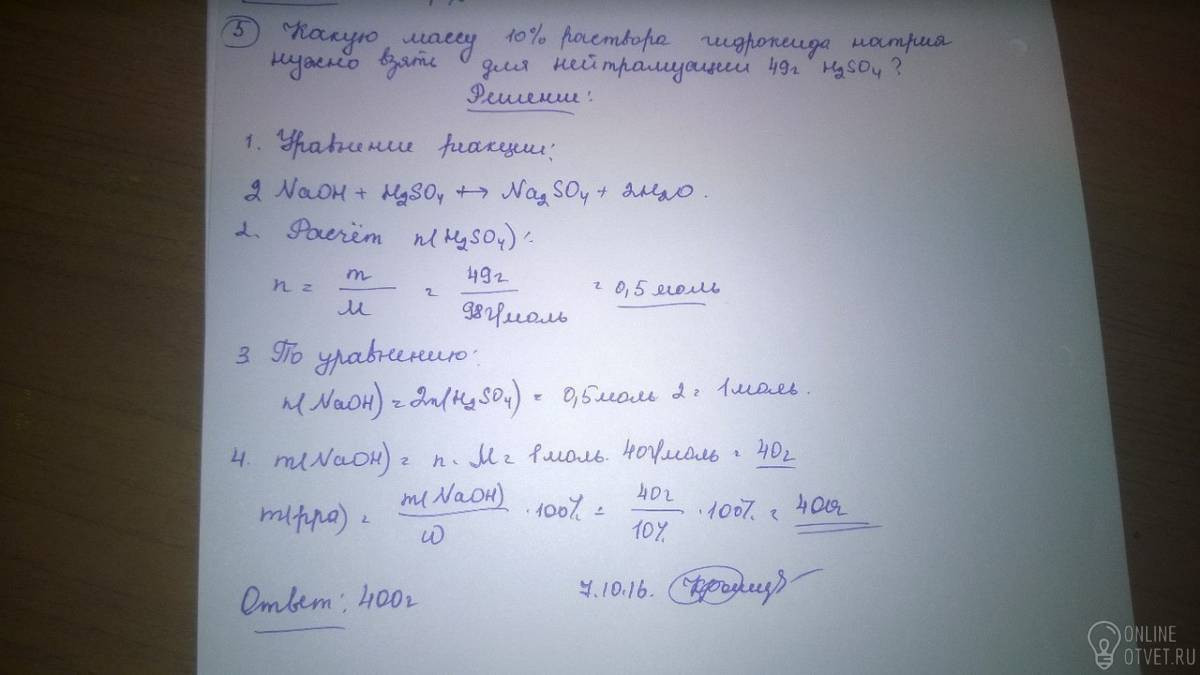 5 Какую массу 10% раствора гидроксида натрия
нужно взять для нейтрализации 49г H₂SO₄?
Решение:
1. Уравнение реакции:
2 NaOH + H₂SO₄ ↔ Na₂SO₄ + 2H₂O.
2. Расчёт n(H₂SO₄):
n = m/M = 49г/98г/моль = 0,5 моль
3. По уравнению:
n(NaOH) = 2n(H₂SO₄) = 0,5моль 2 = 1 моль.
4. m(NaOH) = n · M = 1моль · 40г/моль = 40г
m(рра) = m(NaOH)/ω · 100% = 40г/10% · 100% = 400г
Ответ: 400г
7.10.16.
ONLINE
OTVET.RU